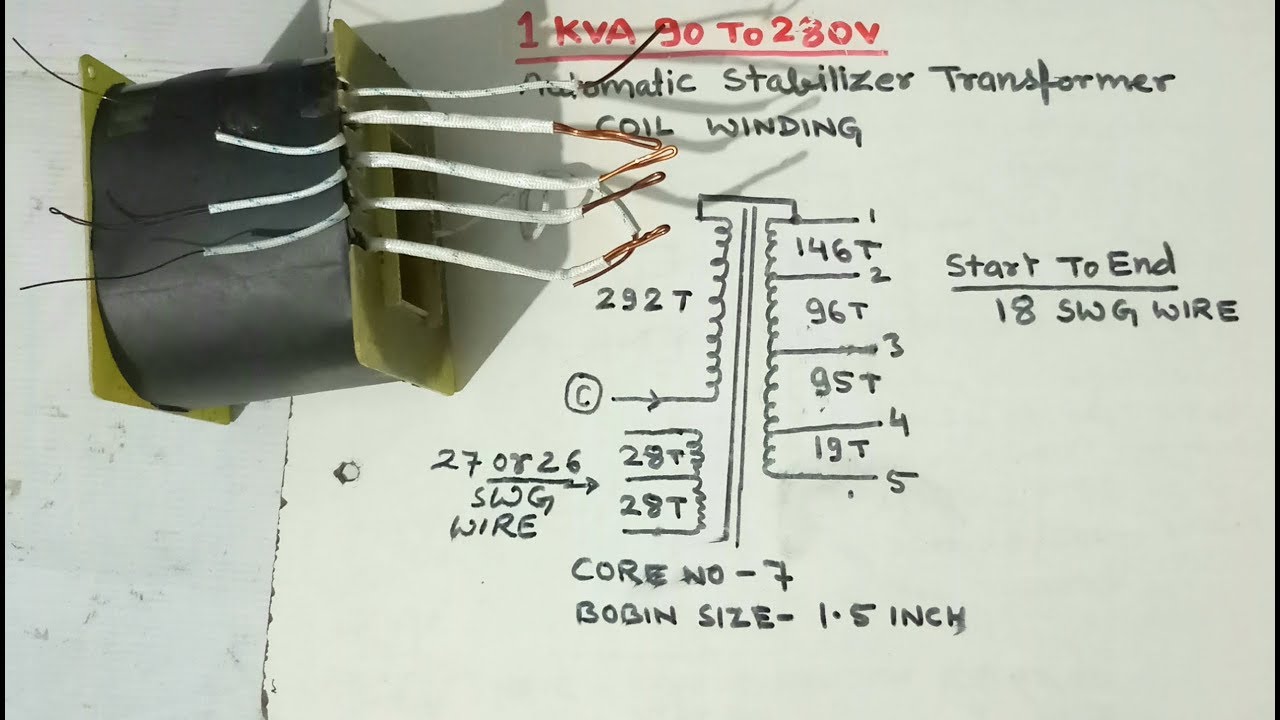 1 KVA 90 TO 280V
Automatic Stabilizer Transformer
COIL WINDING
1
146T
2
292T
96T
3
95T
4
19T
5
Start To End
18 SWG WIRE
C
27 or 26
SWG
WIRE
28T
28T
CORE NO - 7
BOBIN SIZE - 1.5 INCH